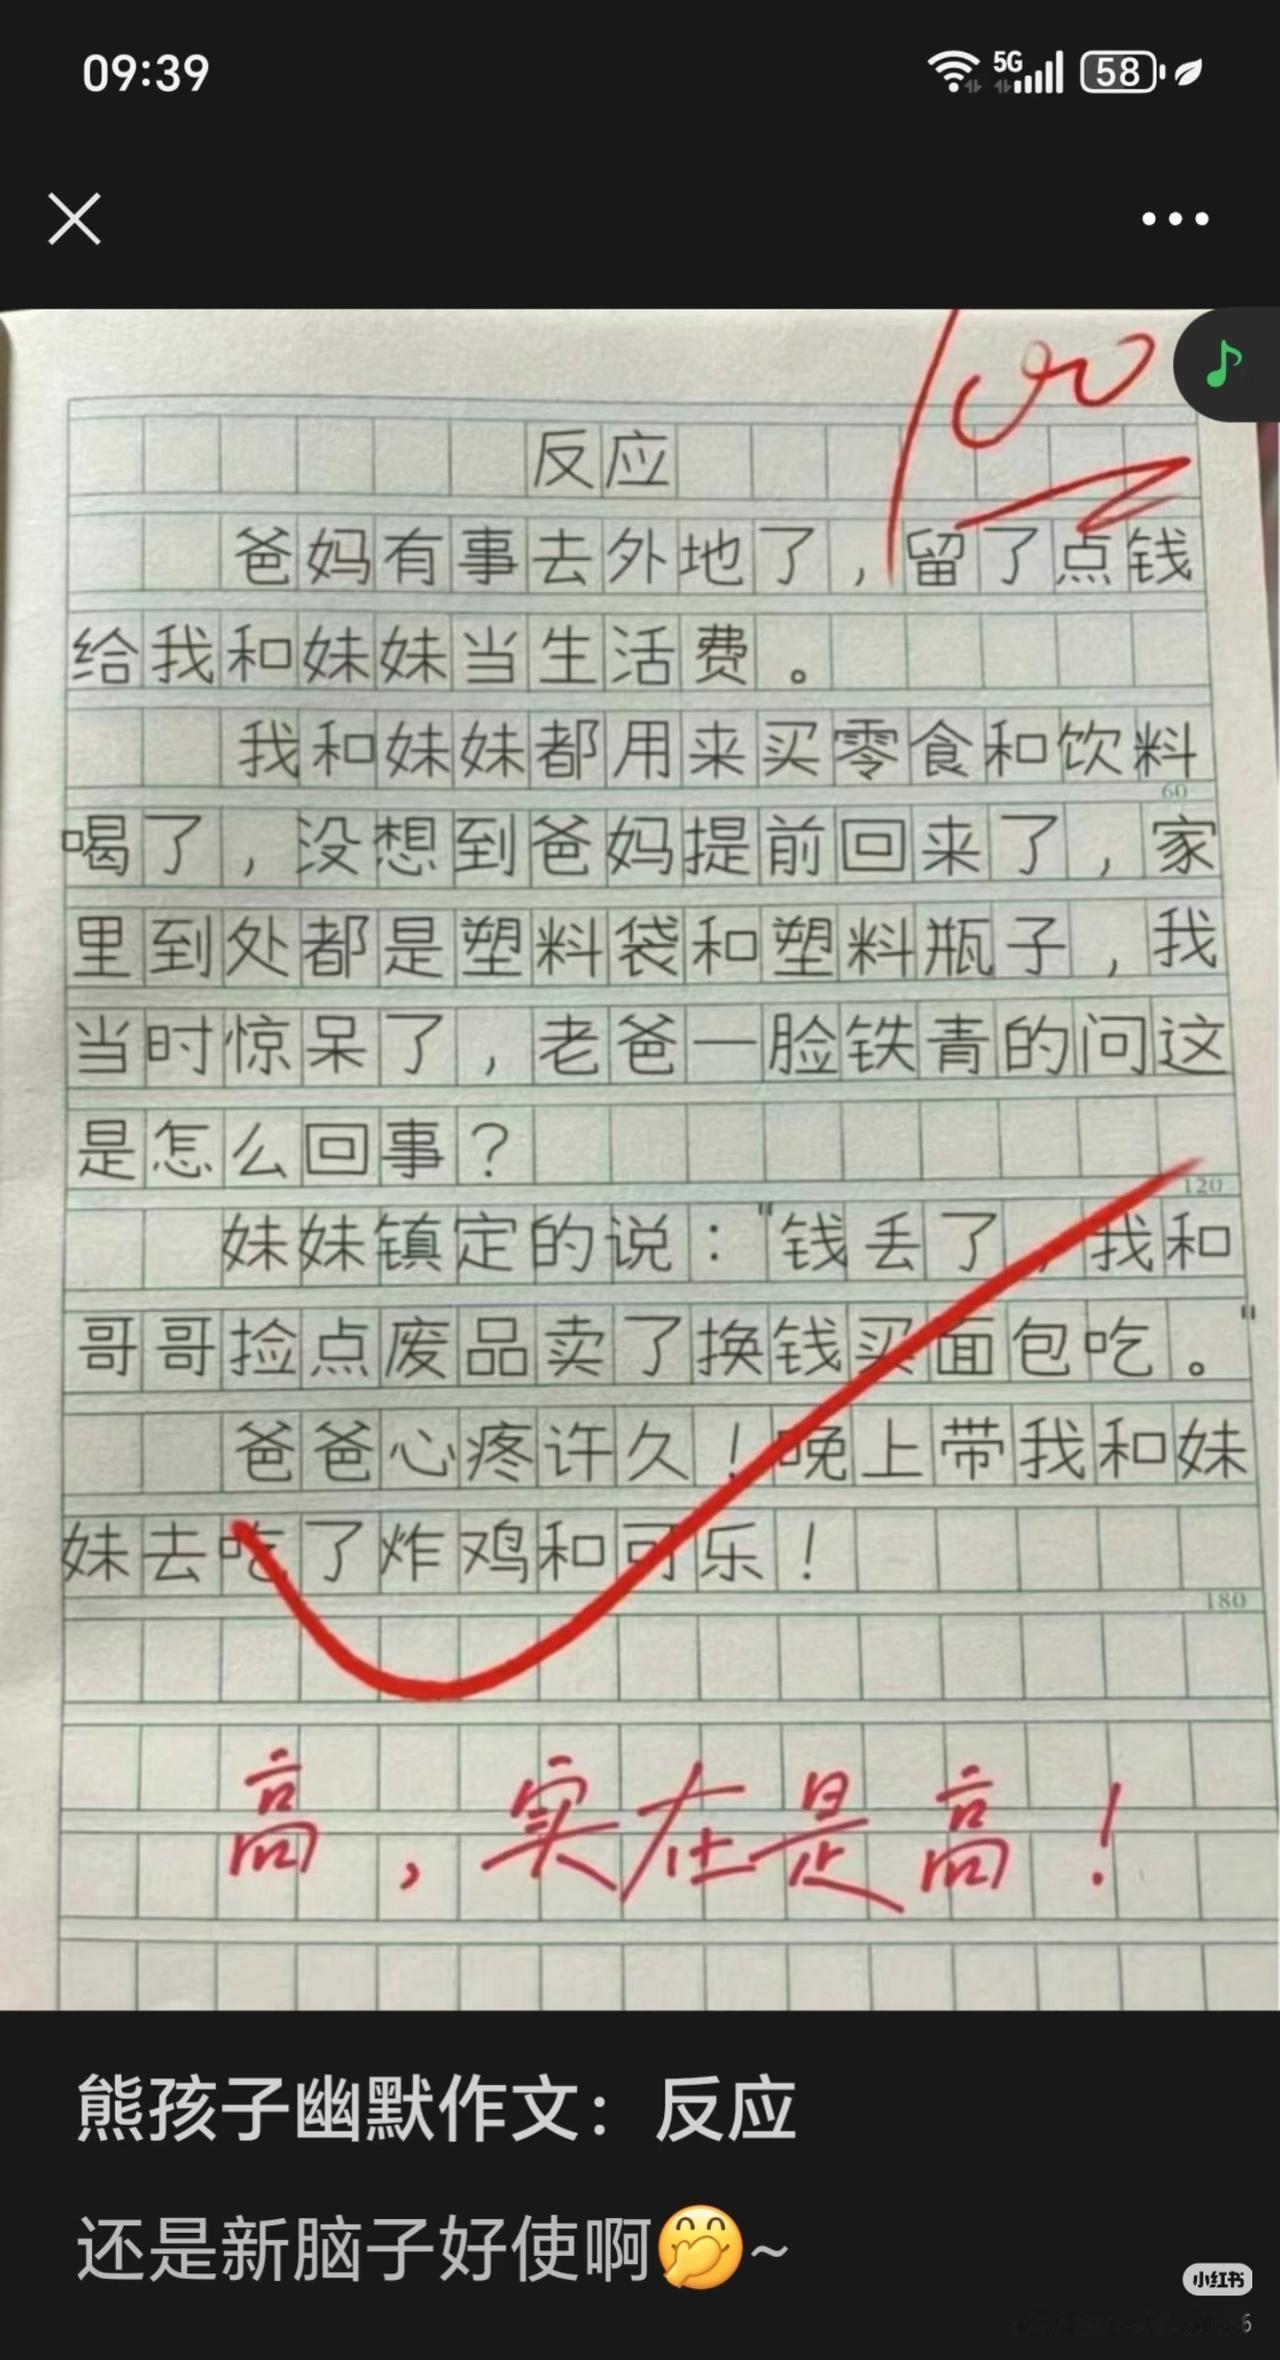 09:39
5G
58
100
反应
爸妈有事去外地了，留了点钱
给我和妹妹当生活费。
我和妹妹都用来买零食和饮料
60
喝了，没想到爸妈提前回来了，家
里到处都是塑料袋和塑料瓶子，我
当时惊呆了，老爸一脸铁青的问这
是怎么回事？
120
妹妹镇定的说："钱丢了，我和
哥哥捡点废品卖了换钱买面包吃。"
爸爸心疼许久！晚上带我和妹
妹去吃了炸鸡和可乐！
180
高，实在是高！
熊孩子幽默作文：反应
还是新脑子好使啊🤭~
小红书